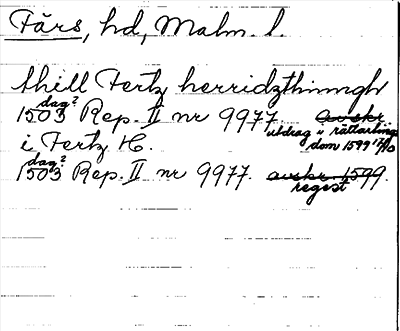 Färs, hd, Malm. l.
thill Fertz herridzthinngh
dag?
1503 Rep. II nr 9977. Avskr
utdrag u rättarting
dom 1599 17/10
i Fertz H.
dag?
1503 Rep. II nr 9977. avskr. 1599.
regest